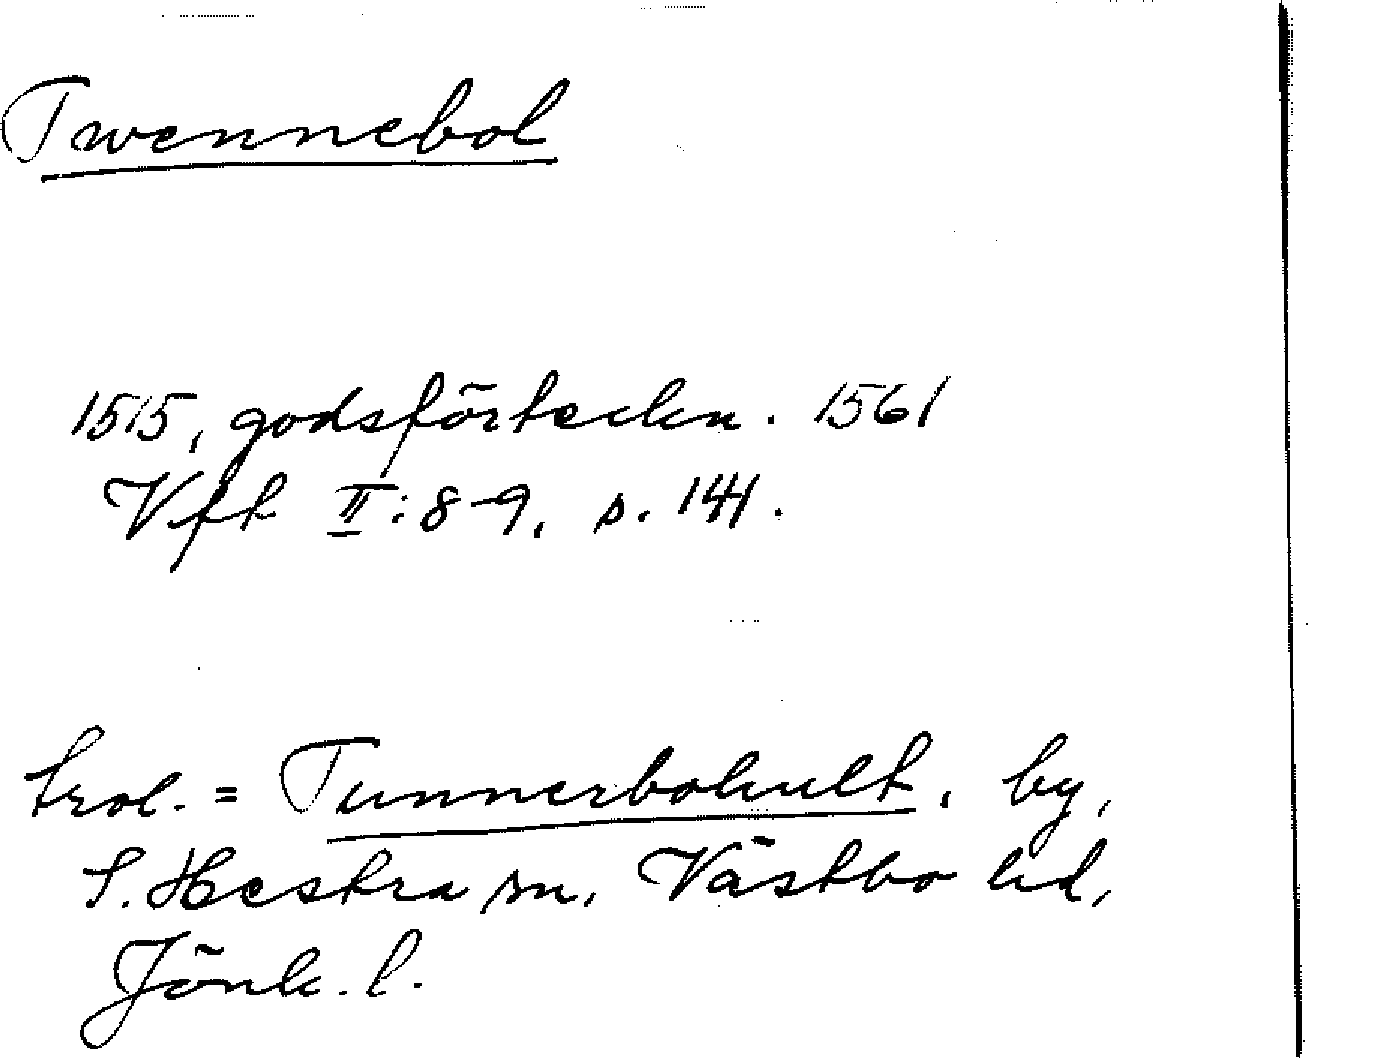 Twennebol
1515, godsförteckn. 1561
Vfk II:8-9, s. 141.
trol. = Tunnerbohult, by,
S. Hestra sn, Västbo hd,
Jönk. l.